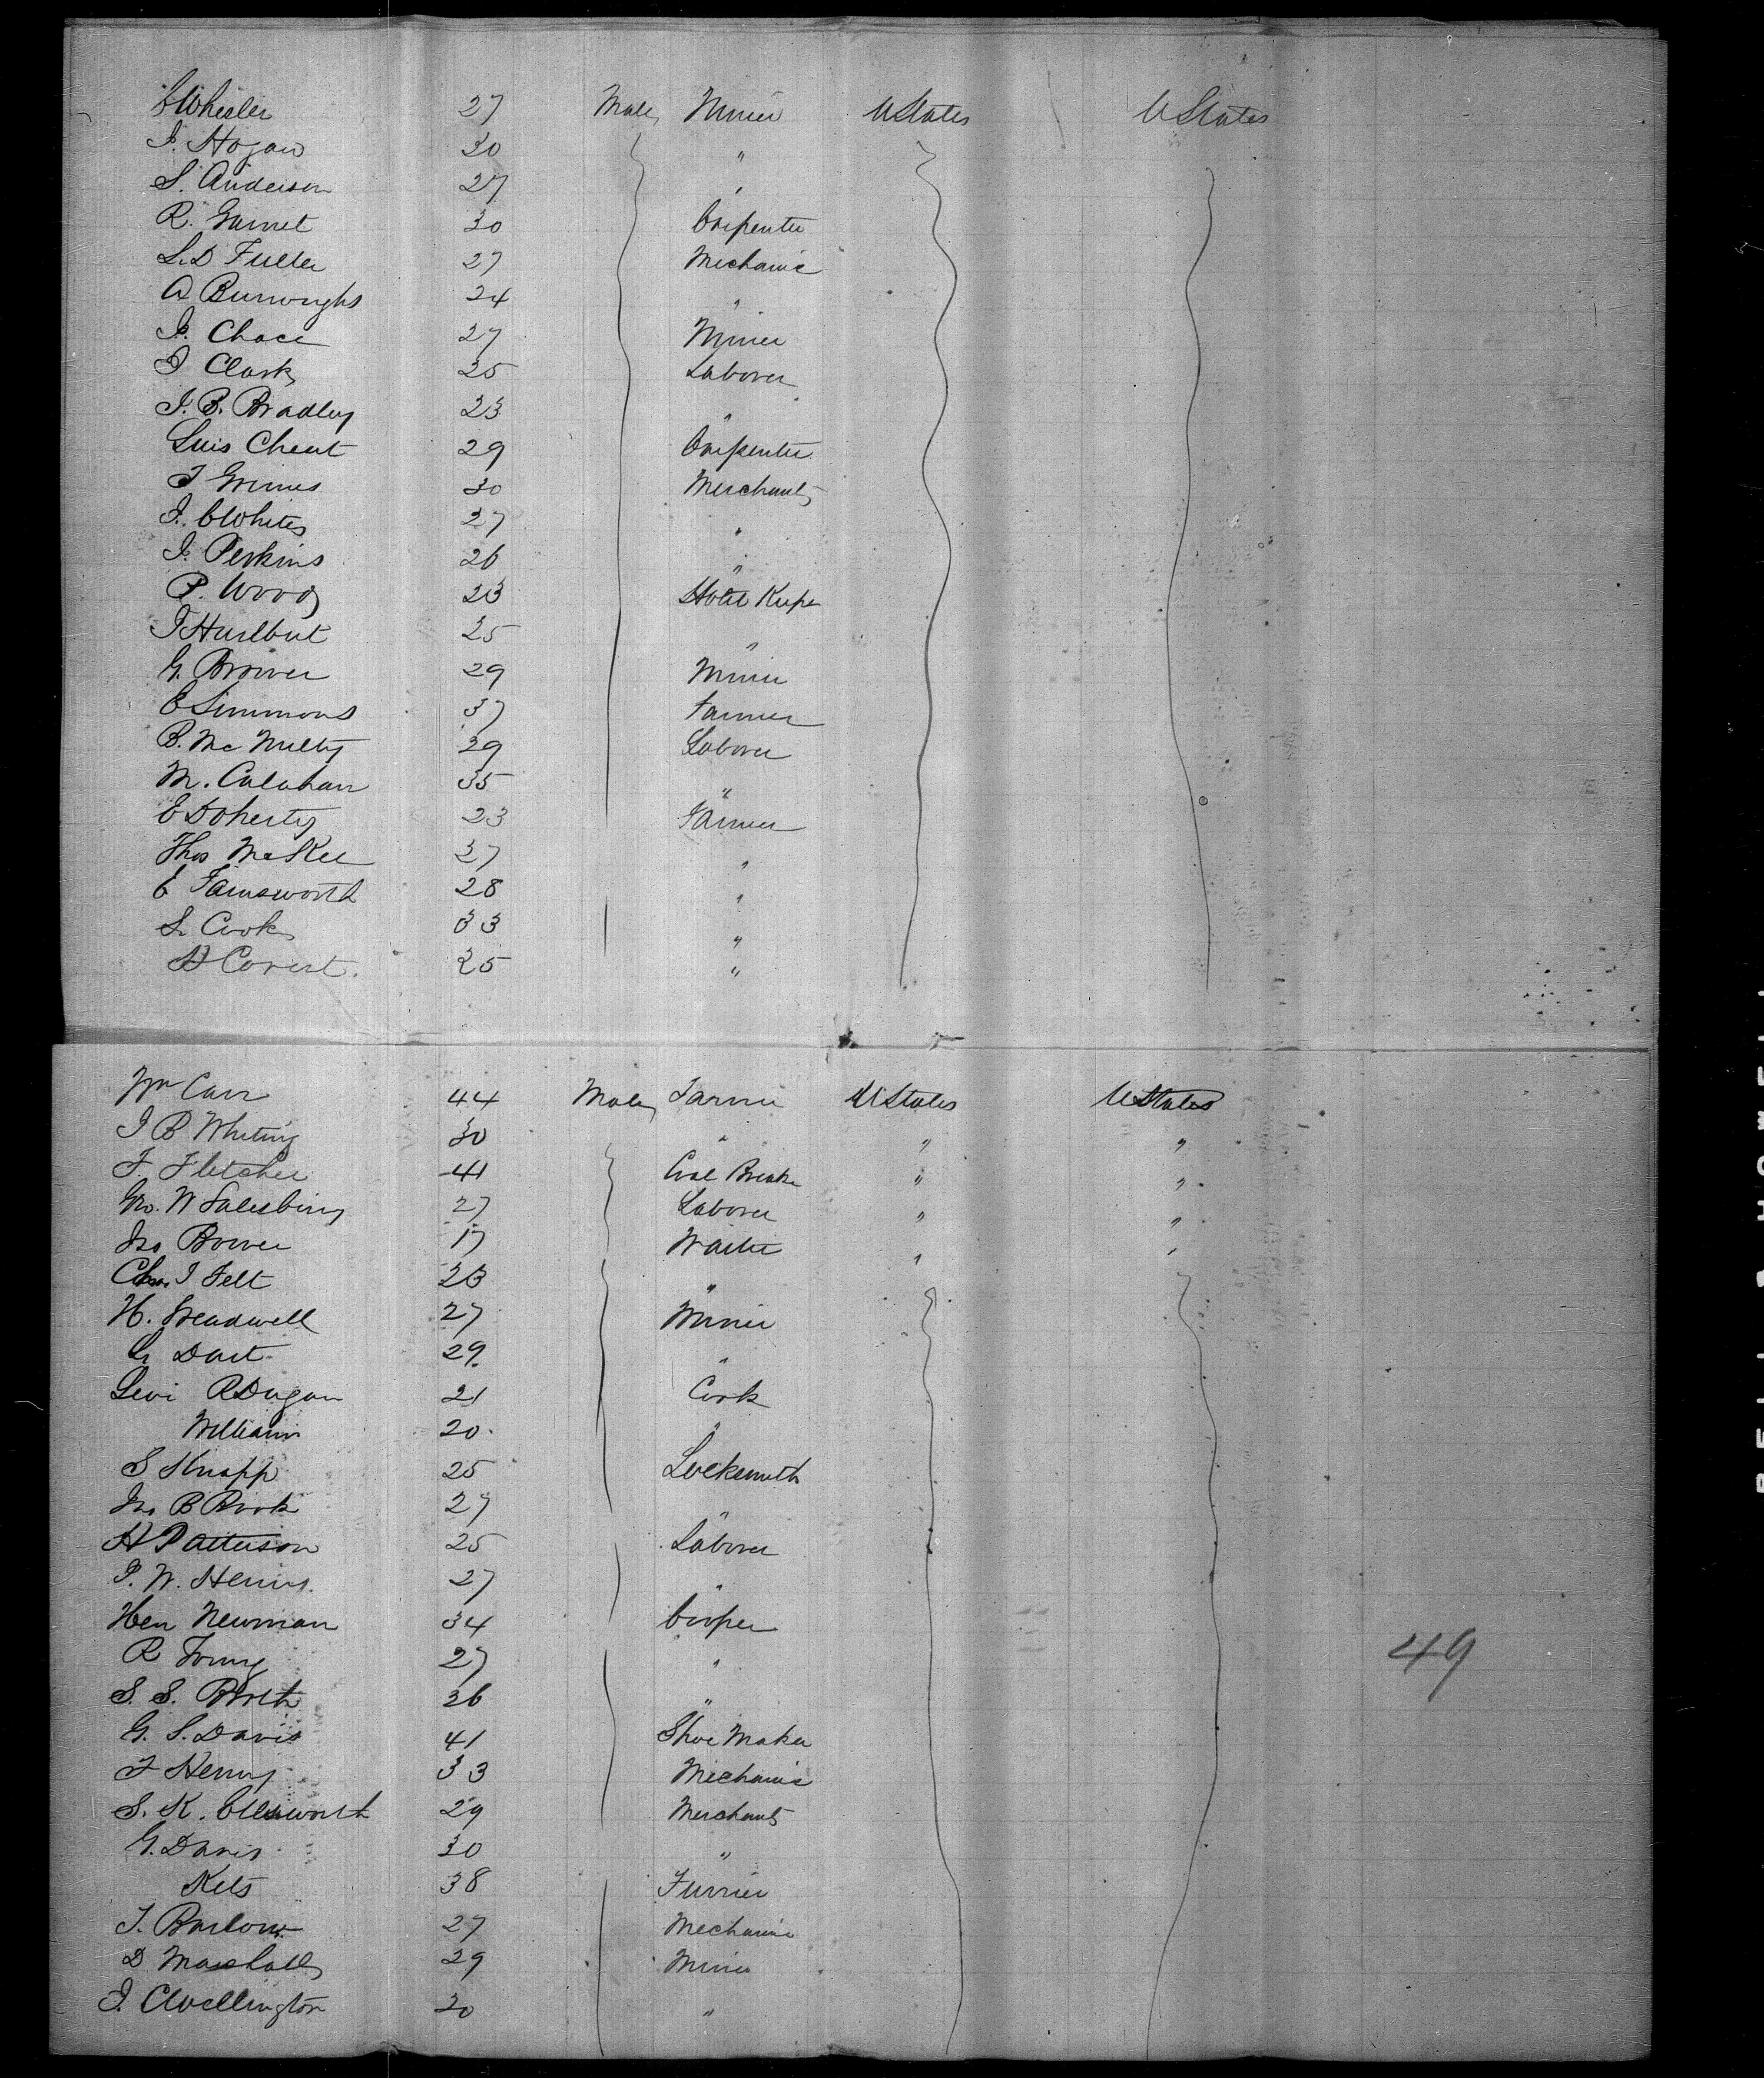 C Wheeler 27 Male Miner U States U States
J. Hogan 30 "
S. Anderson 27 "
R. Garnet 30 Carpenter
S. D Fuller 27 Mechanic
A Burroughs 24 "
J. Chace 27 Miner
J Clark 25 Laborer
J. B. Bradley 23 "
Luis Cheat 29 Carpenter
J Grimes 30 Merchant
J. C White 27 "
J. Perkins 26 "
P. Wood 23 Hotel Keeper
J Hurlbut 25 "
G. Brower 29 Miner
E Simmons 37 Farmer
B. Mc Nulty 29 Laborer
M. Calahan 35 "
E Doherty 23 Farmer
Thos McKee 27 "
E Farnsworth 28 "
S. Cook 33 "
D Covert. 25 "
Wm Carr 44 Male Farmer U States U States
J B Whiting 30 " " "
F. Fletcher 41 Coal Breaker " "
Geo. W Salesbury 27 Laborer " "
Jno Brower 17 Waiter " "
Chas J Felt 23 "
H. Treadwell 27 Miner
G Dart 29 "
Levi R Dugan 21 Cook
William 20 "
S Knapp 25 Locksmith
Jno B Brook 27 "
H Patterson 25 Laborer
P. W. Henry 27 "
Hen Newman 34 Cooper
R Young 27 "
S. S. 36 "
G. S. Davis 41 Shoe Maker
J Henry 33 Mechanic
S. K. Ellsworth 29 Merchant
G. Davis 30 "
38 Furrier
J. Barlow 27 Mechanic
D Marshall 29 Miner
J. C Wellington 30 "
49